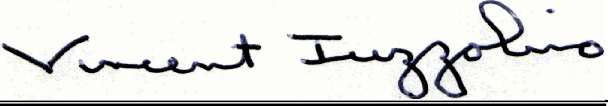 Vincent Iuzzolino